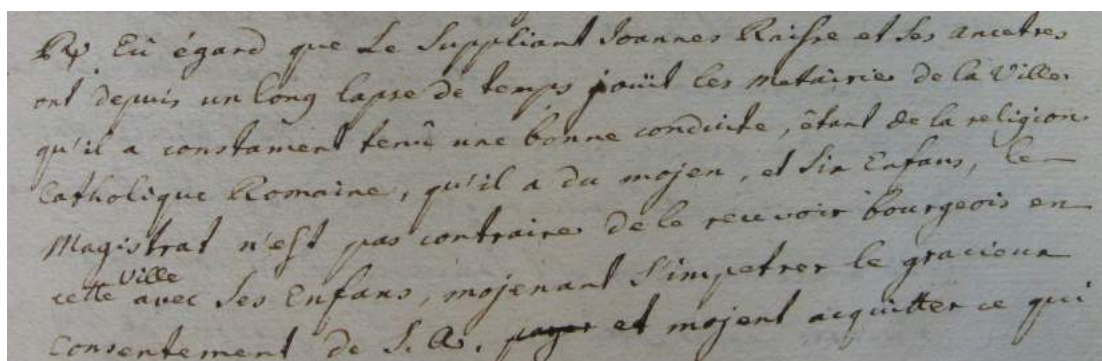 Rx. Eû égard que Le Suppliant Joannes Raisre et ses ancetres
ont depuis un long lapse de temps joüit les metairies de la Ville
qu'il a constament tenû une bonne conduite, êtant de la religion
Catholique Romaine, qu'il a du mojen, et six Enfans, le
Magistrat n'est pas contraire de le recevoir bourgeois en
cette Ville avec ses Enfans, mojenant d'impetrer le gracieux
Consentement de S. A. et mojent acquitter ce qui